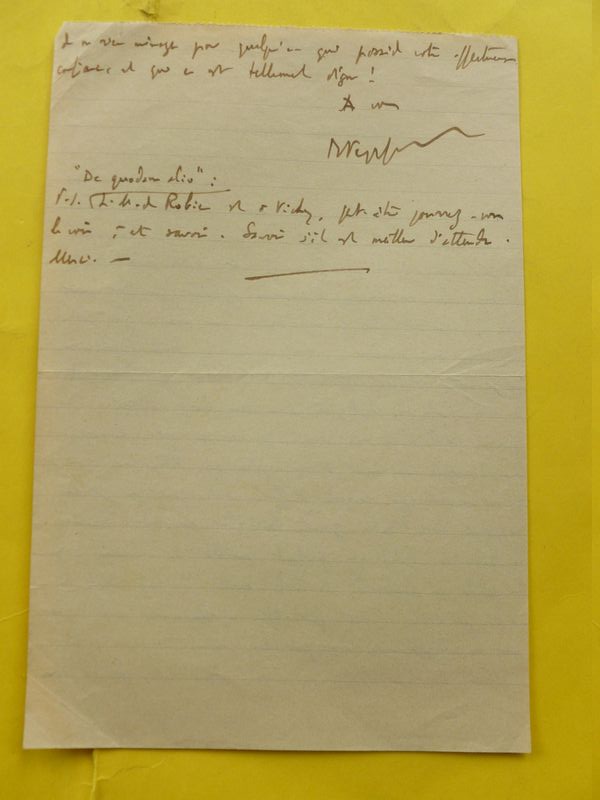 pour quelqu'un qui possède votre affectueuse
confiance et qui en est tellement digne !
A vous
"De quodam alio" :
P.S. L. M. de Robien est à Vichy, peut-être pourrez-vous
le voir, et savoir. Savoir s'il est meilleur d'attendre.
Merci. —